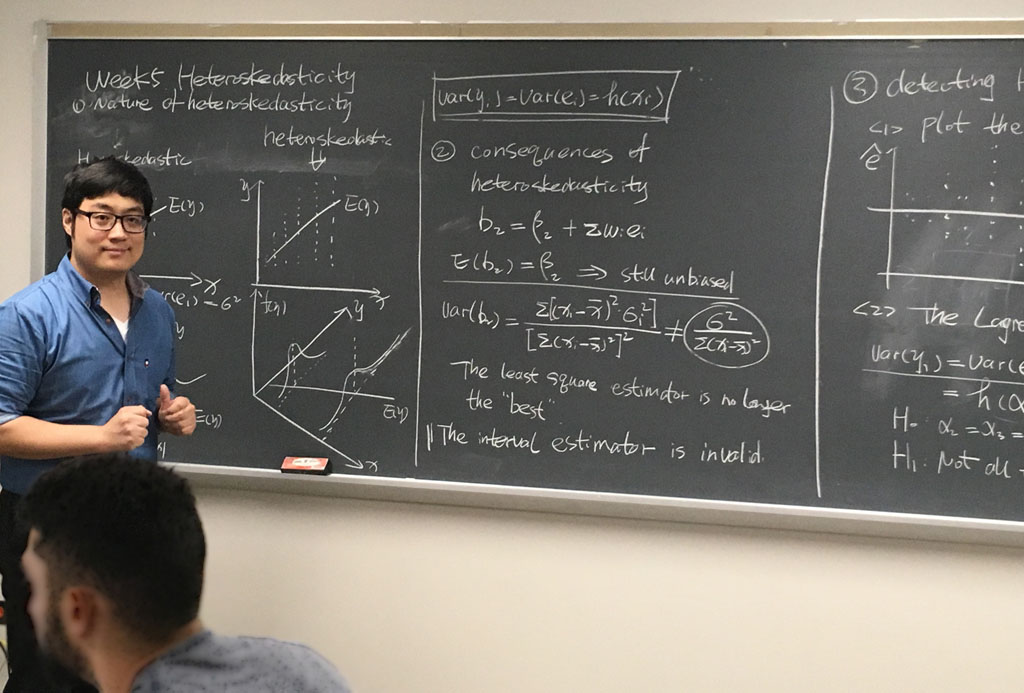 Week 5 Heteroskedasticity
① Nature of heteroskedasticity
heteroskedastic
kedastic
E(y)
x
(e₁) = σ²
E(y)
y
E(y)
x
f(y)
y
E(y)
x
var(yᵢ) = Var(eᵢ) = h(xᵢ)
② consequences of
heteroskedasticity
b₂ = β₂ + Σwᵢeᵢ
E(b₂) = β₂ ⇒ still unbiased
Var(b₂) = Σ[(xᵢ-x̄)²σᵢ²] / [Σ(xᵢ-x̄)²]² ≠ σ² / Σ(xᵢ-x̄)²
The least square estimator is no longer
the "best"
|| The interval estimator is invalid.
③ detecting H
<1> plot the
ê
<2> The Lagr
Var(yᵢ) = Var(e
= h(α
H₀: α₂ = α₃ =
H₁: Not all